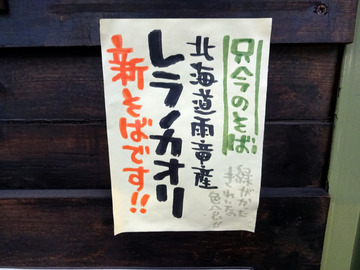 只今のそば
北海道雨竜産
レラノカオリ
新そばです!!
緑がかった